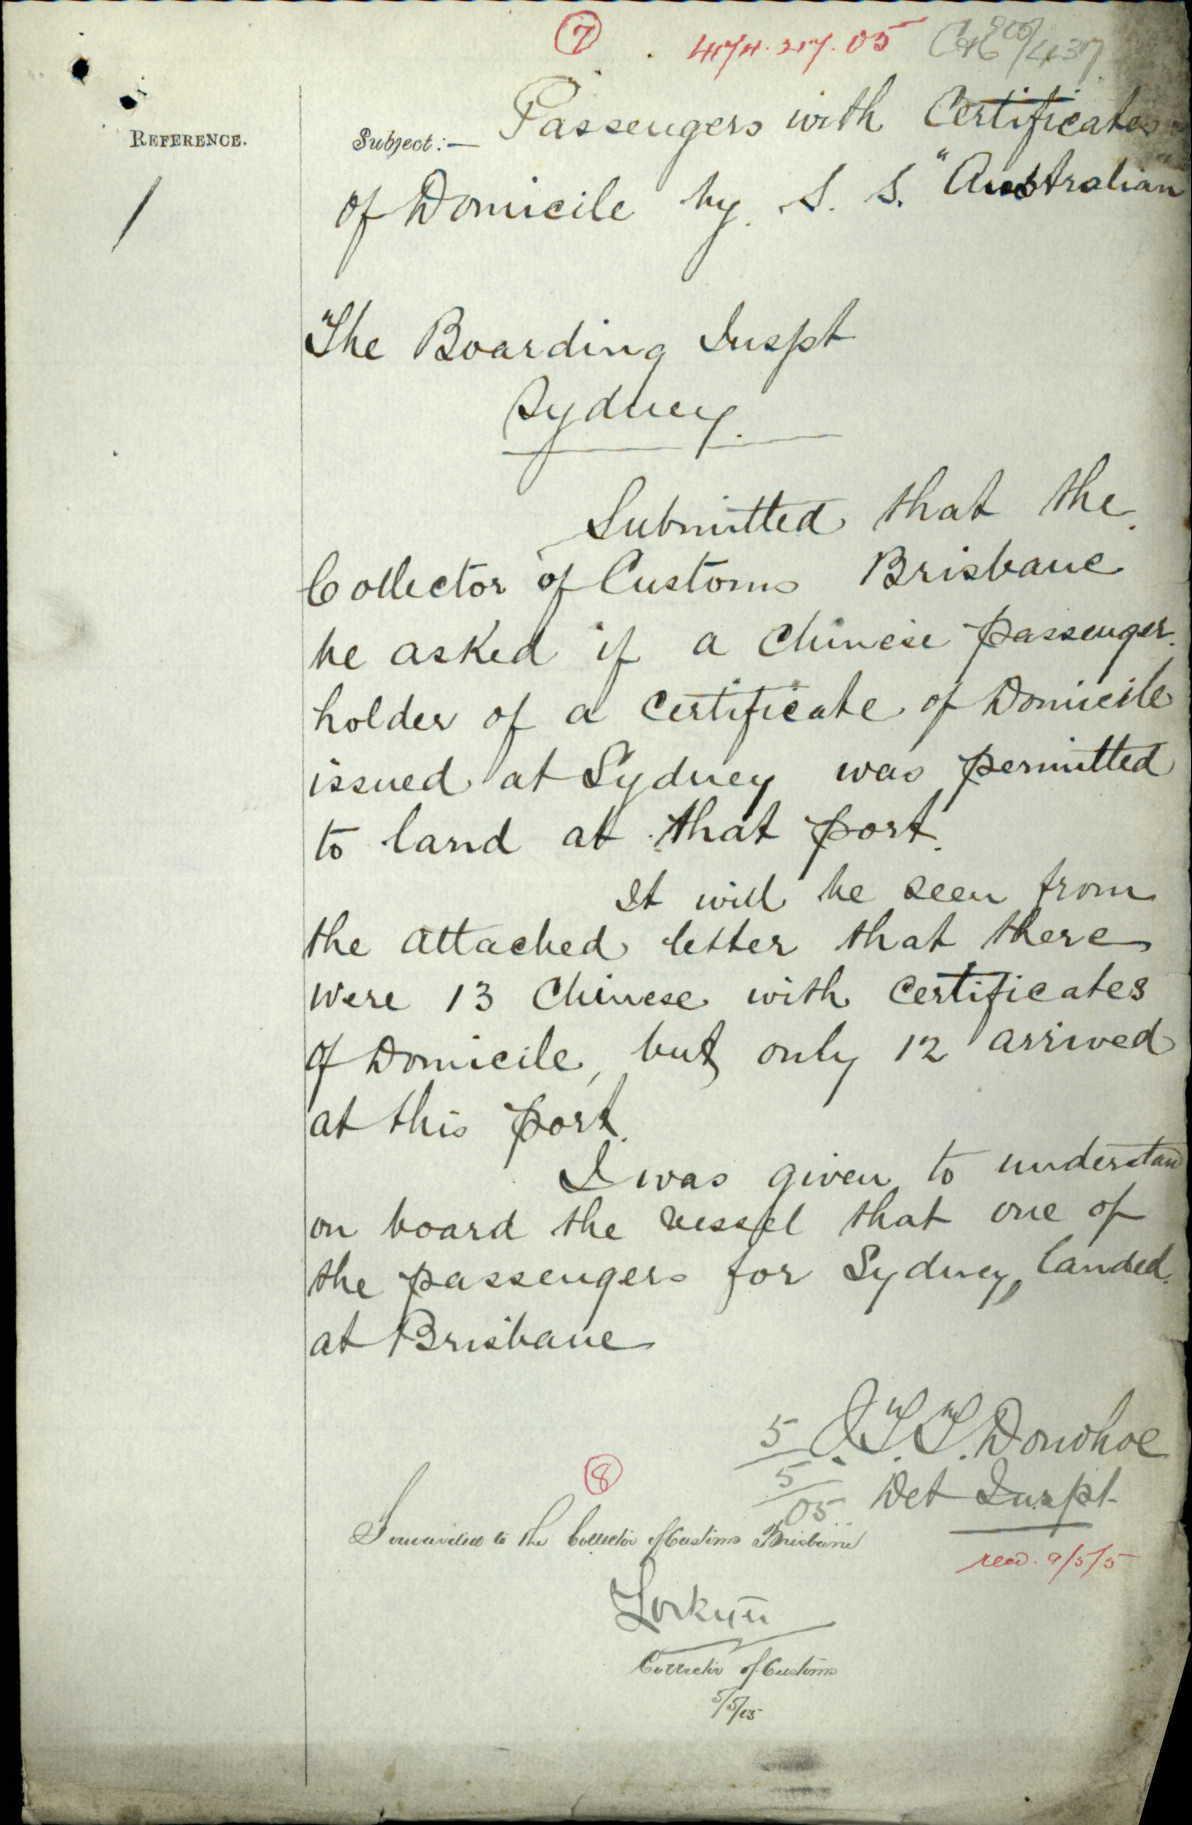 7
474.217.05
REFERENCE.
1
Subject:— Passengers with Certificates
of Domicile by S. S. "Australian"
The Boarding Inspt
Sydney.
Submitted that the
Collector of Customs Brisbane
be asked if a Chinese passenger
holder of a Certificate of Domicile
issued at Sydney was permitted
to land at that port.
It will be seen from
the attached letter that there
were 13 Chinese with Certificates
of Domicile, but only 12 arrived
at this port.
I was given to understand
on board the vessel that one of
the passengers for Sydney, landed
at Brisbane
J.T.T. Donohoe
5/5/05 Det Inspt
8
Forwarded to the Collector of Customs Brisbane
recd. 9/5/5
Collector of Customs
5/5/05